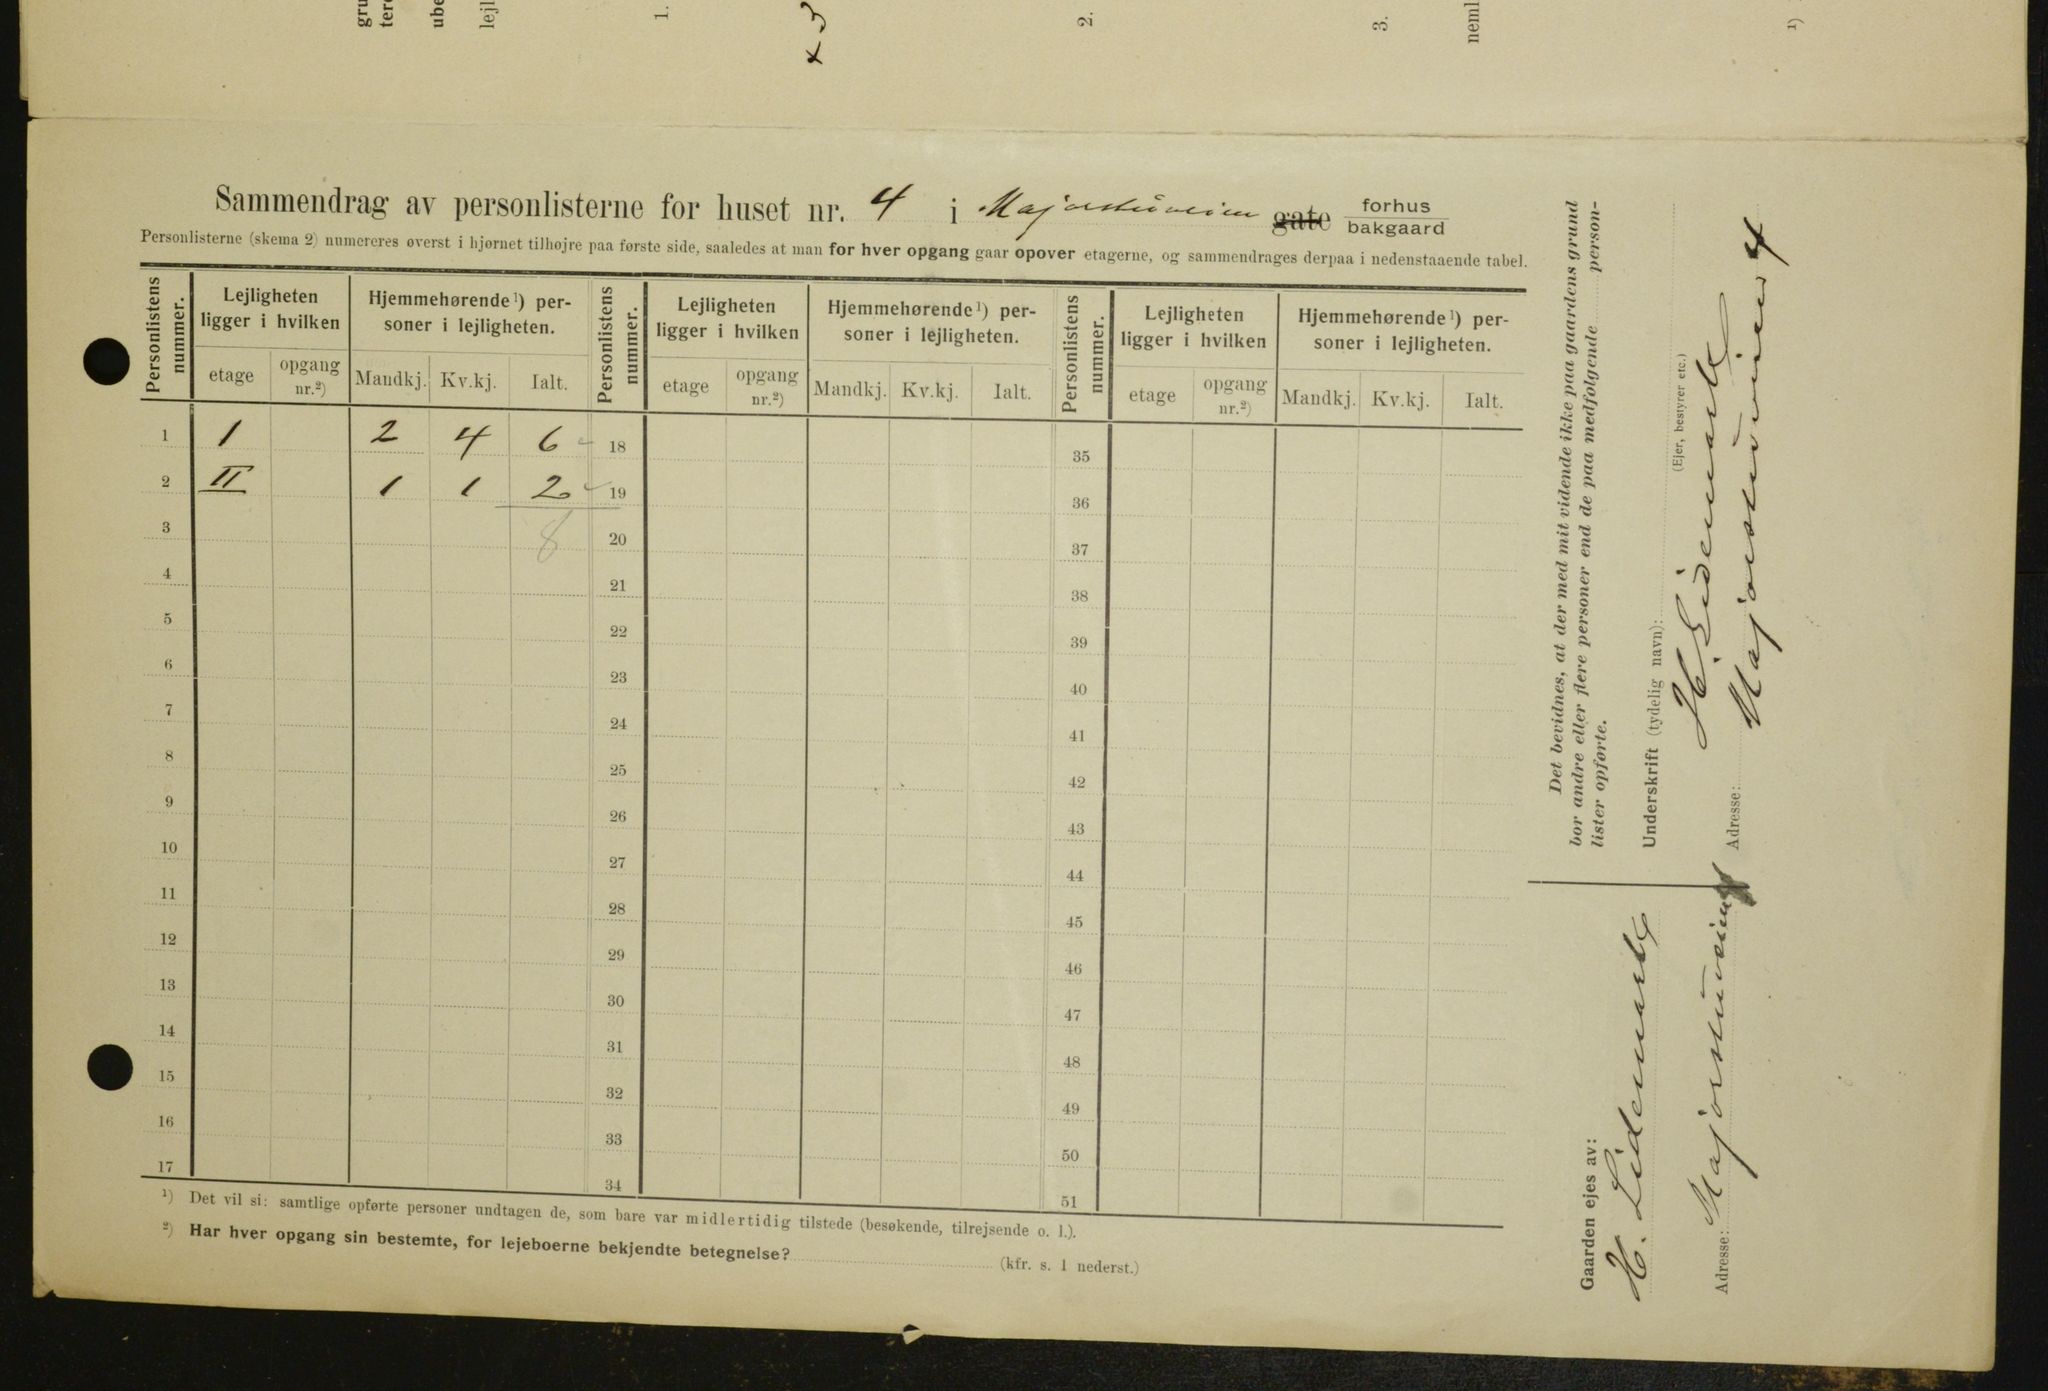 1.
2.
3.
neml
1)
Sammendrag av personlisterne for huset nr. 4 i Majorstuveien gate forhus
bakgaard
Personlisterne (skema 2) numereres øverst i hjørnet tilhøjre paa første side, saaledes at man for hver opgang gaar opover etagerne, og sammendrages derpaa i nedenstaaende tabel.
Personlistens nummer. Lejligheten ligger i hvilken Hjemmehørende¹) personer i lejligheten. Personlistens nummer. Lejligheten ligger i hvilken Hjemmehørende¹) personer i lejligheten. Personlistens nummer. Lejligheten ligger i hvilken Hjemmehørende¹) personer i lejligheten.
etage opgang nr.²) Mandkj. Kv.kj. Ialt. etage opgang nr.²) Mandkj. Kv.kj. Ialt. etage opgang nr.²) Mandkj. Kv.kj. Ialt.
1 1 2 4 6 18 35
2 II 1 1 2 19 36
3 8 20 37
4 21 38
5 22 39
6 23 40
7 24 41
8 25 42
9 26 43
10 27 44
11 28 45
12 29 46
13 30 47
14 31 48
15 32 49
16 33 50
17 34 51
¹) Det vil si: samtlige opførte personer undtagen de, som bare var midlertidig tilstede (besøkende, tilrejsende o. l.).
²) Har hver opgang sin bestemte, for lejeboerne bekjendte betegnelse? (kfr. s. 1 nederst.)
Det bevidnes, at der med mit vidende ikke paa gaardens grund
bor andre eller flere personer end de paa medfølgende person-
lister opførte.
Underskrift (tydelig navn):
H. Lidemark
(Ejer, bestyrer etc.)
Adresse: Majorstuveien 4
Gaarden ejes av:
H. Lidemark
Adresse: Majorstuveien 4